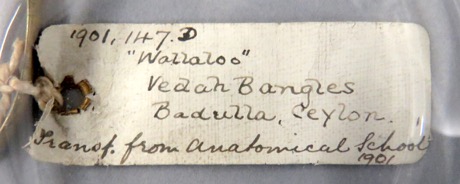 1901.147.D
"Wallaloo"
Vedah Bangles
Badulla, Ceylon.
Transf. from Anatomical School
1901